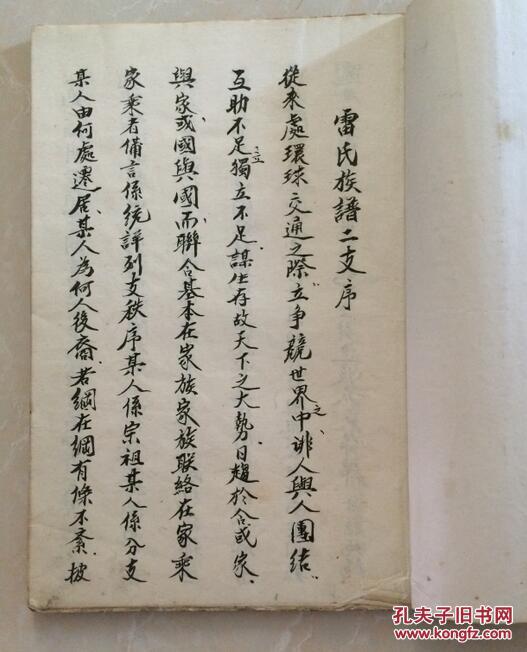 雷氏族譜二支序
從來處環球交通之際立爭競世界之中誹人與人團結
互助不足獨立不足謀生存故天下之大勢日趨於合或家
與家或國與國而聯合基本在家族家族联絡在家乘
家乘者備言係統詳列支秩序某人係宗祖某人係分支
某人由何處遷居某人為何人後裔若綱在綱有條不紊披
孔夫子旧书网
KONGFZ.COM